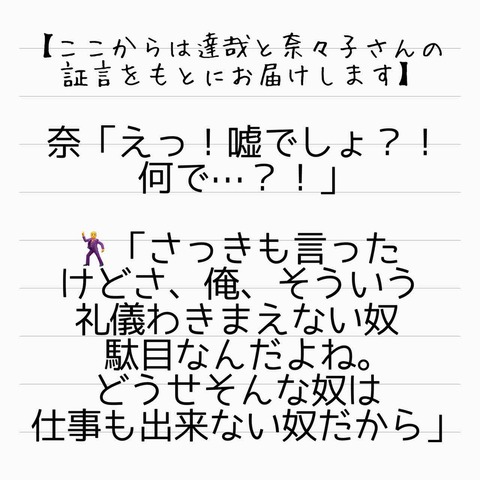 【ここからは達哉と奈々子さんの
証言をもとにお届けします】
奈「えっ！嘘でしょ？！
何で…？！」
🕺「さっきも言った
けどさ、俺、そういう
礼儀わきまえない奴
駄目なんだよね。
どうせそんな奴は
仕事も出来ない奴だから」